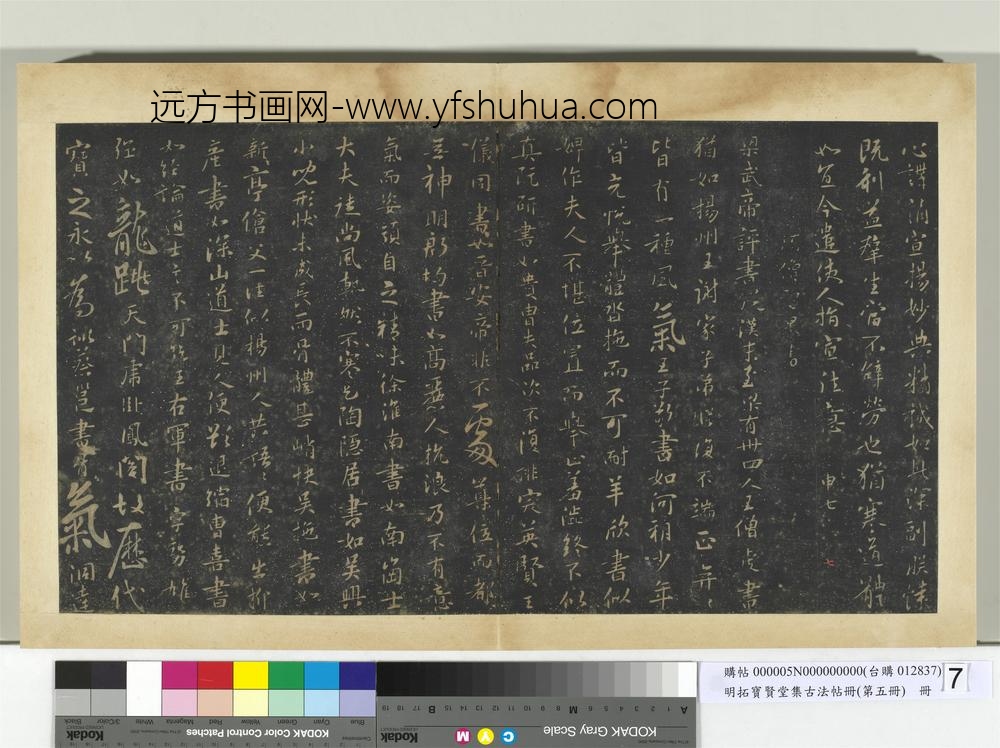 远方书画网-www.yfshuhua.com
心謹消宣揚妙典精誠如
既利益羣生當不辭勞也猶寒道體
如宜今遣使人指宣往意 申七
七
梁武帝評書從漢末至梁有卅四人王僧虔書
猶如揚州王謝家子弟縱復不端正奕奕
皆有一種風氣王子敬書如河朔少年
皆充悅舉體沓拖而不可耐羊欣書似
婢作夫人不堪位置而舉止羞澀終不似
真阮研書如貴胄失品次不復排突英賢王
儀同書如晉安帝非不處尊位而都
無神明庾肩吾書
氣而姿顏自之精味徐淮南書如南岡士
大夫徒尚風軌然不寒乞陶隱居書如吳興
小兒形狀未成長而骨體甚峭快吳施書如
新亭傖父一往似揚州人共語便態出
產書如深山道士見人便欲退縮曹喜書
如經論道士言不可絕王右軍書字勢雄
強如龍跳天門虎臥鳳閣故歷代
寶之永以為訓蔡邕書骨氣洞達
購帖 000005N000000000(台購 012837)
7
明拓寶賢堂集古法帖冊(第五冊) 冊
Black
3/Color
White
Magenta
Red
Yellow
Green
Cyan
Blue
Kodak
KODAK Color Control Patches
A 1 2 3 4 5 6 M 8 9 10 11 12 13 14 15 B 17 18 19
KODAK Gray Scale
C Y M
Kodak